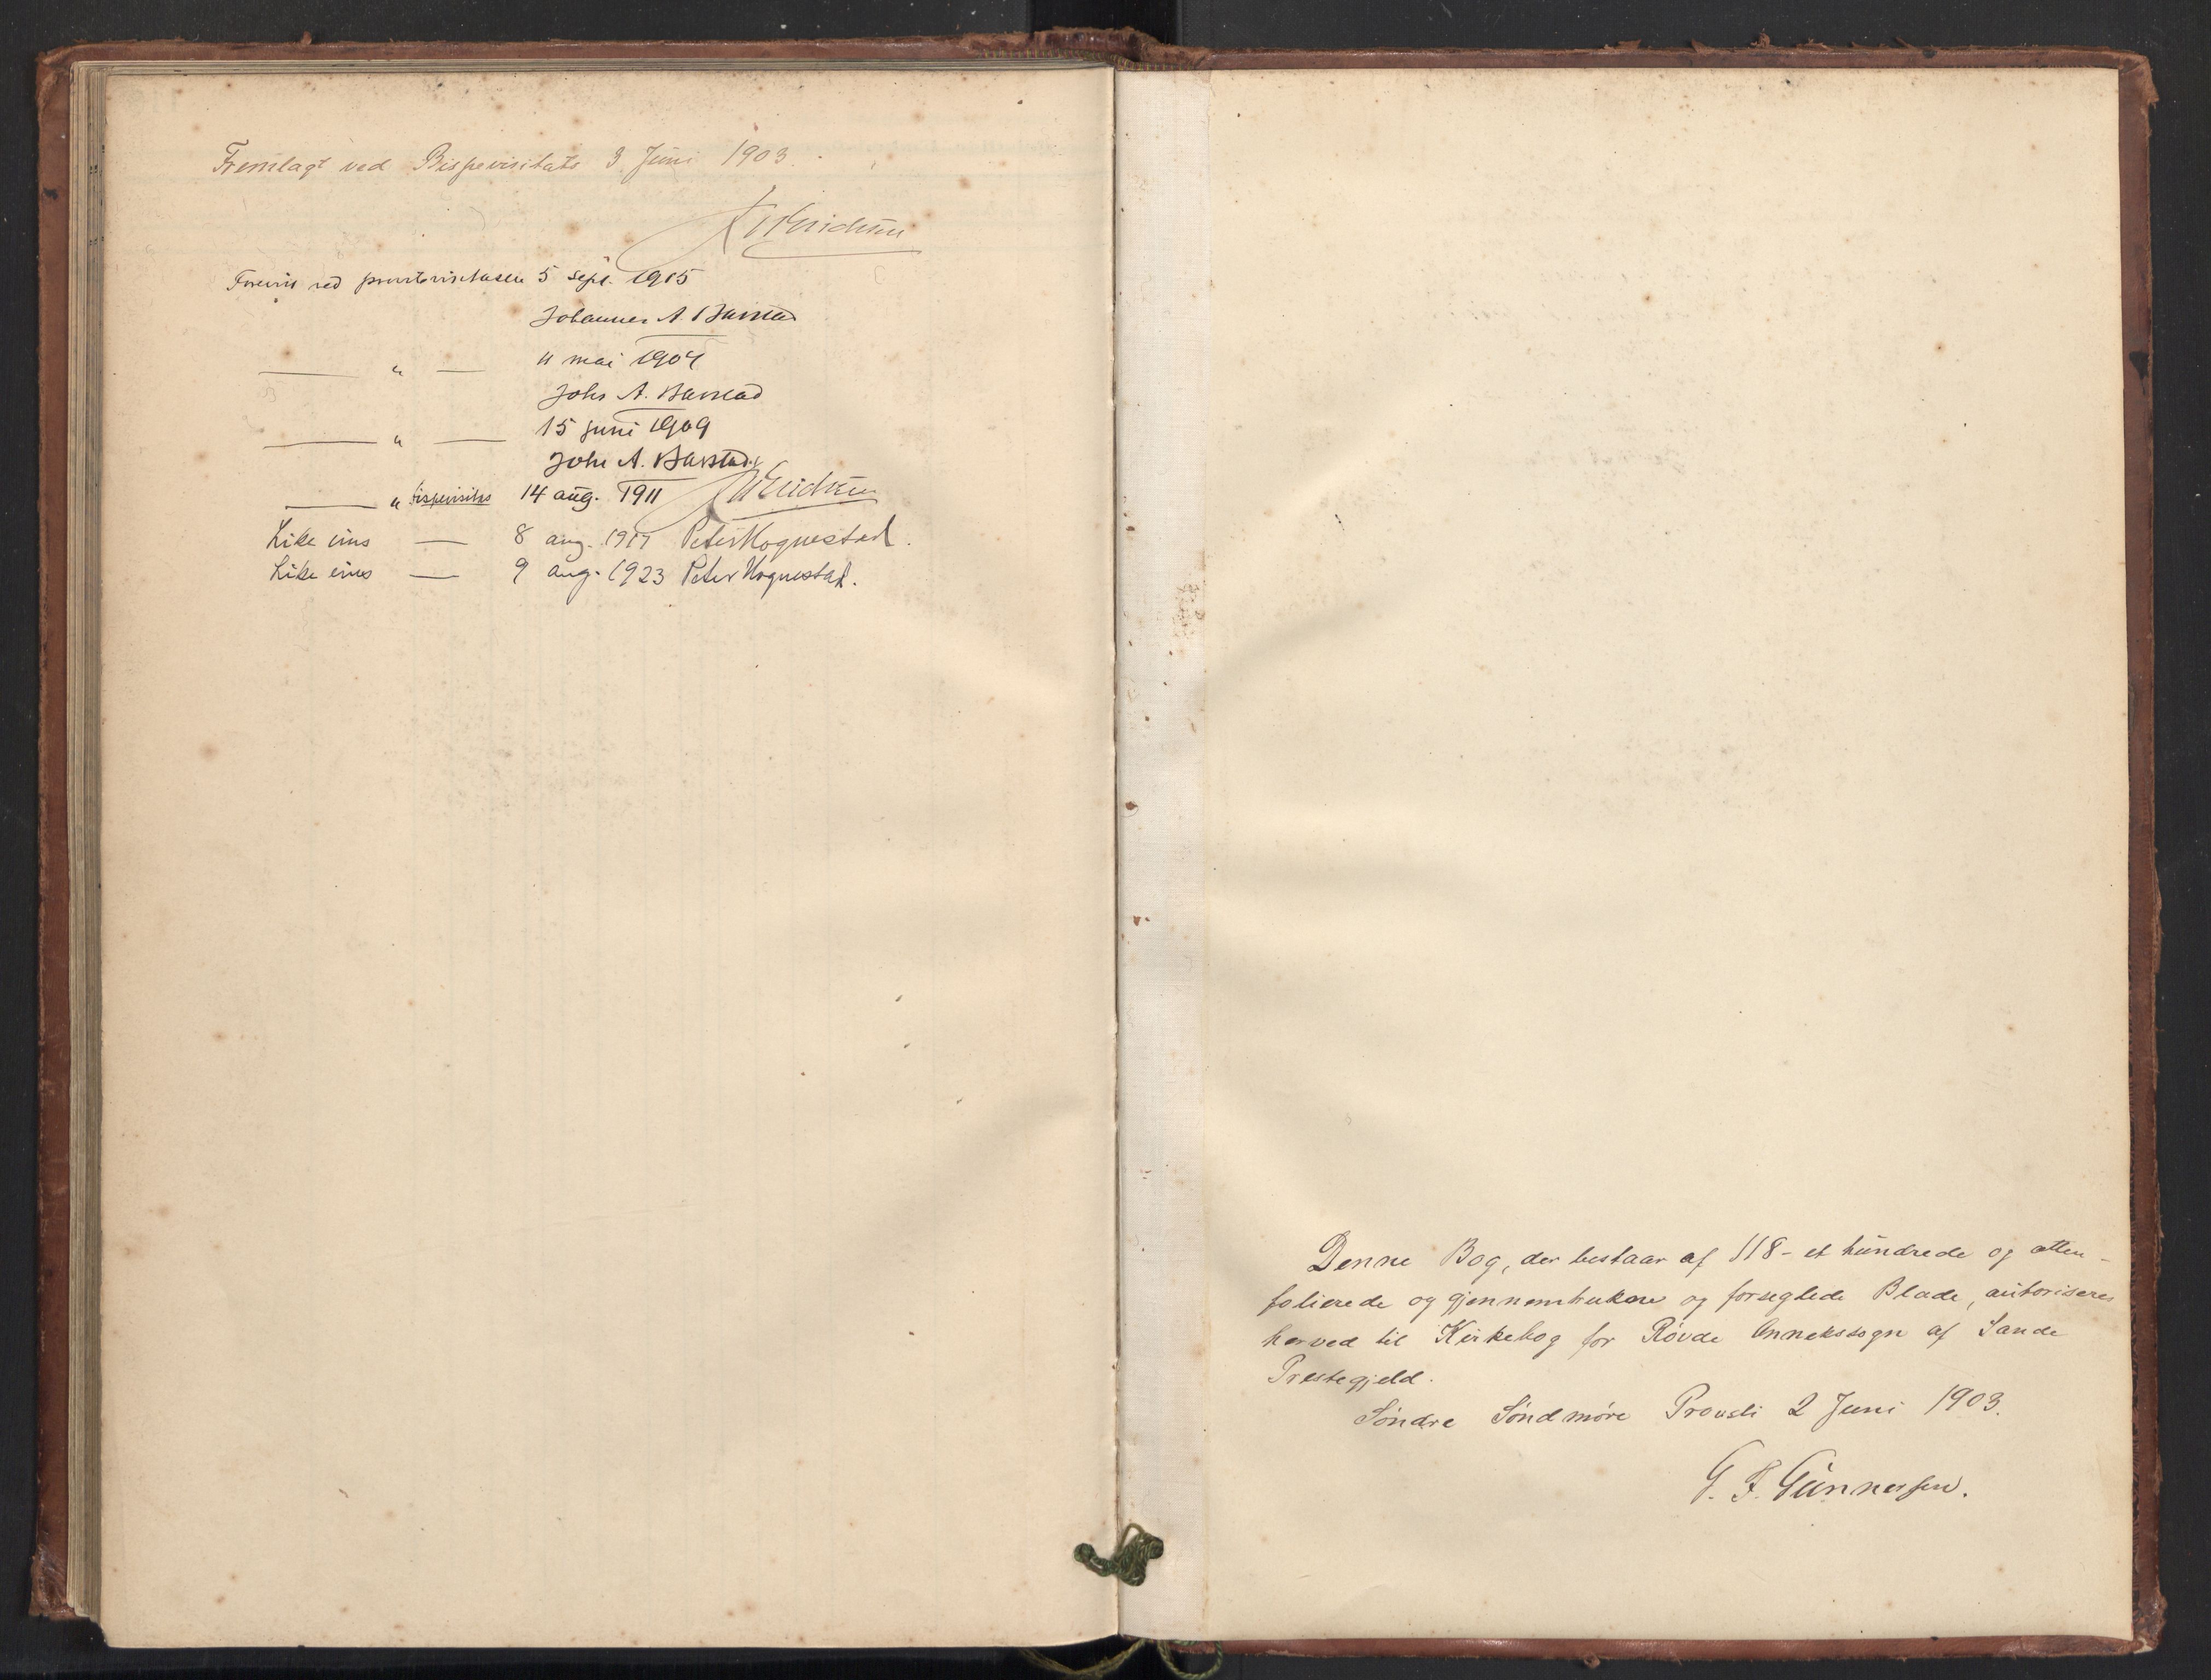 Fremlagt ved Bispevisitats 3 Juni 1903.
Erichsen
ved provstevisitasen 5 sept. 1905
Johannes A. Barstad
— " — 11 mai 1907
Johs A. Barstad
— " — 15 juni 1909
Johs A. Barstad
— " bispevisitas 14 aug. 1911 Erichsen
Like eins — 8 aug. 1917 Peter Hognestad.
Like eins — 9 aug. 1923 Peter Hognestad.
Denne Bog, der bestaar af 118 - et hundrede og atten -
folierede og gjennemtrukne og forseglede Blade, autoriseres
herved til Kirkebog for Røvde Annekssogn af Sande
Prestegjeld.
Søndre Søndmøre Provsti 2 Juni 1903.
G. F. Gunnersen.